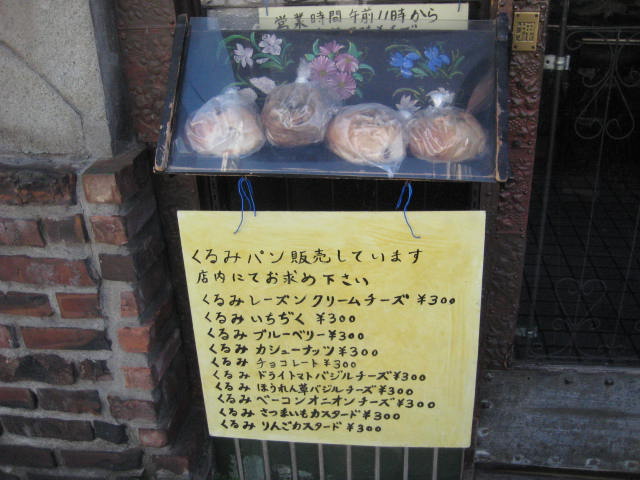 営業時間 午前11時から
くるみパン販売しています
店内にてお求め下さい
くるみレーズンクリームチーズ ¥300
くるみ いちぢく ¥300
くるみ ブルーベリー ¥300
くるみ カシューナッツ ¥300
くるみ チョコレート ¥300
くるみ ドライトマトバジルチーズ ¥300
くるみ ほうれん草バジルチーズ ¥300
くるみ ベーコンオニオンチーズ ¥300
くるみ さつまいもカスタード ¥300
くるみ りんごカスタード ¥300